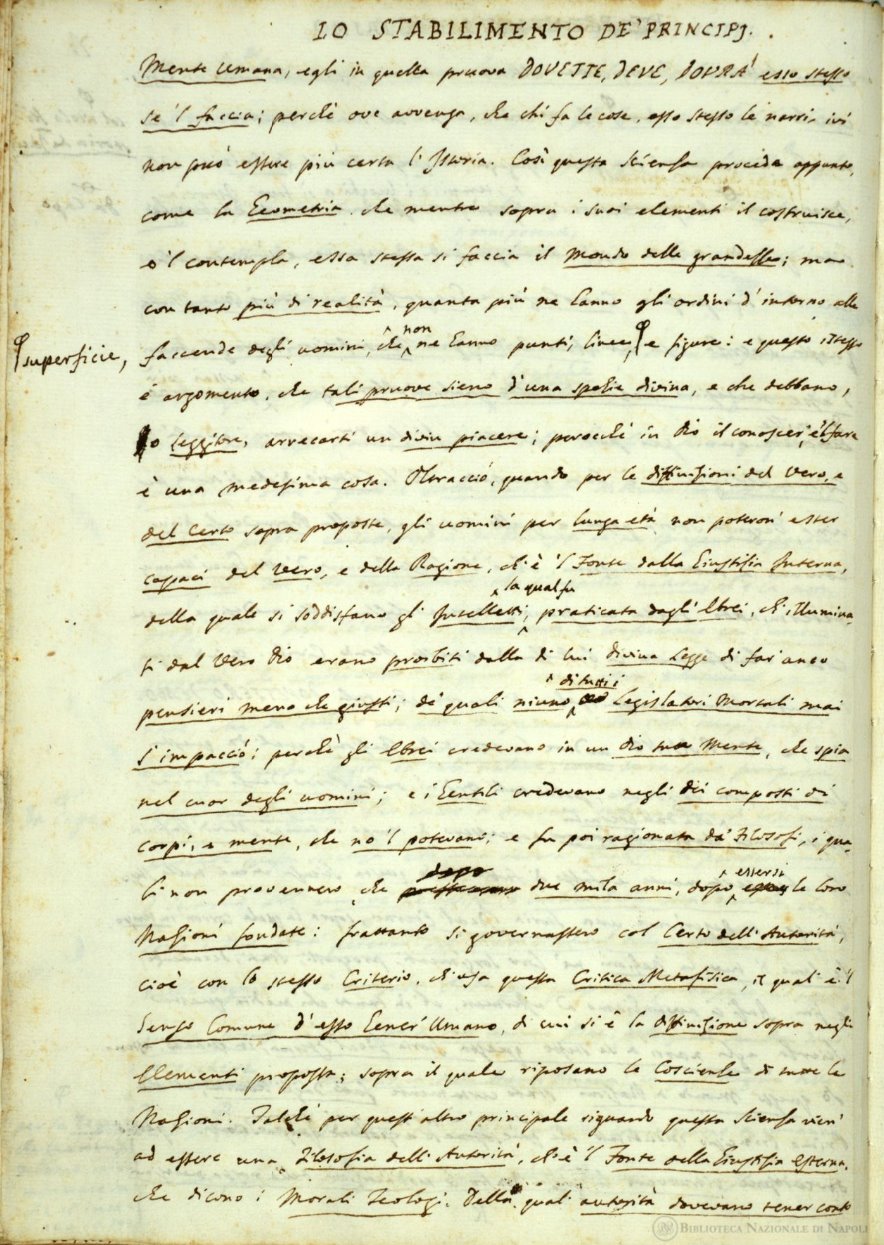 LO STABILIMENTO DE' PRINCIPJ.
Mente umana, egli in quella pruova DOVETTE, DEVE, DOVRA' esso stesso
se 'l faccia; perchè ove avvenga, che chi fa le cose, esso stesso le narri, ivi
non può essere più certa l'Istoria. Così questa Scienza procede appunto,
come la Geometria, che mentre sopra i suoi elementi il costruisce,
o 'l contempla, essa stessa si faccia il Mondo delle grandezze; ma
con tanto più di realità, quanta più ne hanno gli ordini d'intorno alle
faccende degli uomini, che non ne hanno punti, linee, e figure: e questo istesso
superficie,
è argomento, che tali pruove sieno d'una spezie divina, e che debbano,
o Leggitore, arrecarti un divin piacere; perocchè in Dio il conoscer, e 'l fare
è una medesima cosa. Oltracciò, quando per le diffinizioni del Vero, e
del Certo sopra proposte, gli uomini per lunga età non poteron' esser
capaci del Vero, e della Ragione, ch'è 'l Fonte della Giustizia Interna,
della quale si soddisfano gl' Intelletti, la qual fu praticata dagli Ebrei, ch'illumina-
ti dal Vero Dio erano proibiti dalla di lui divina Legge di far' anco
pensieri meno che giusti; de' quali niuno di tutti i Legislatori Mortali mai
s'impacciò; perchè gli Ebrei credevano in un Dio tutto Mente, che spia
nel cuor degli uomini; e i Gentili credevano negli dei composti di
corpi, e mente, che no 'l potevano; e fu poi ragionata da' Filosofi, i qua-
li non provennero, che dopo due mila anni, dopo essersi le loro
Nazioni fondate: frattanto si governassero col Certo dell'Autorità,
cioè con lo stesso Criterio, ch'usa questa Critica Metafisica, il qual' è 'l
Senso Comune d'esso Gener' Umano, di cui si è la diffinizione sopra negli
Elementi proposta; sopra il quale riposano le Coscienze di tutte le
Nazioni. Talchè per quest'altro principale riguardo questa Scienza vien'
ad essere una Filosofia dell'Autorità, ch'è 'l Fonte della Giustizia esterna,
che dicono i Morali Teologi. Della quali autorità dovevano tener conto
BIBLIOTECA NAZIONALE DI NAPOLI